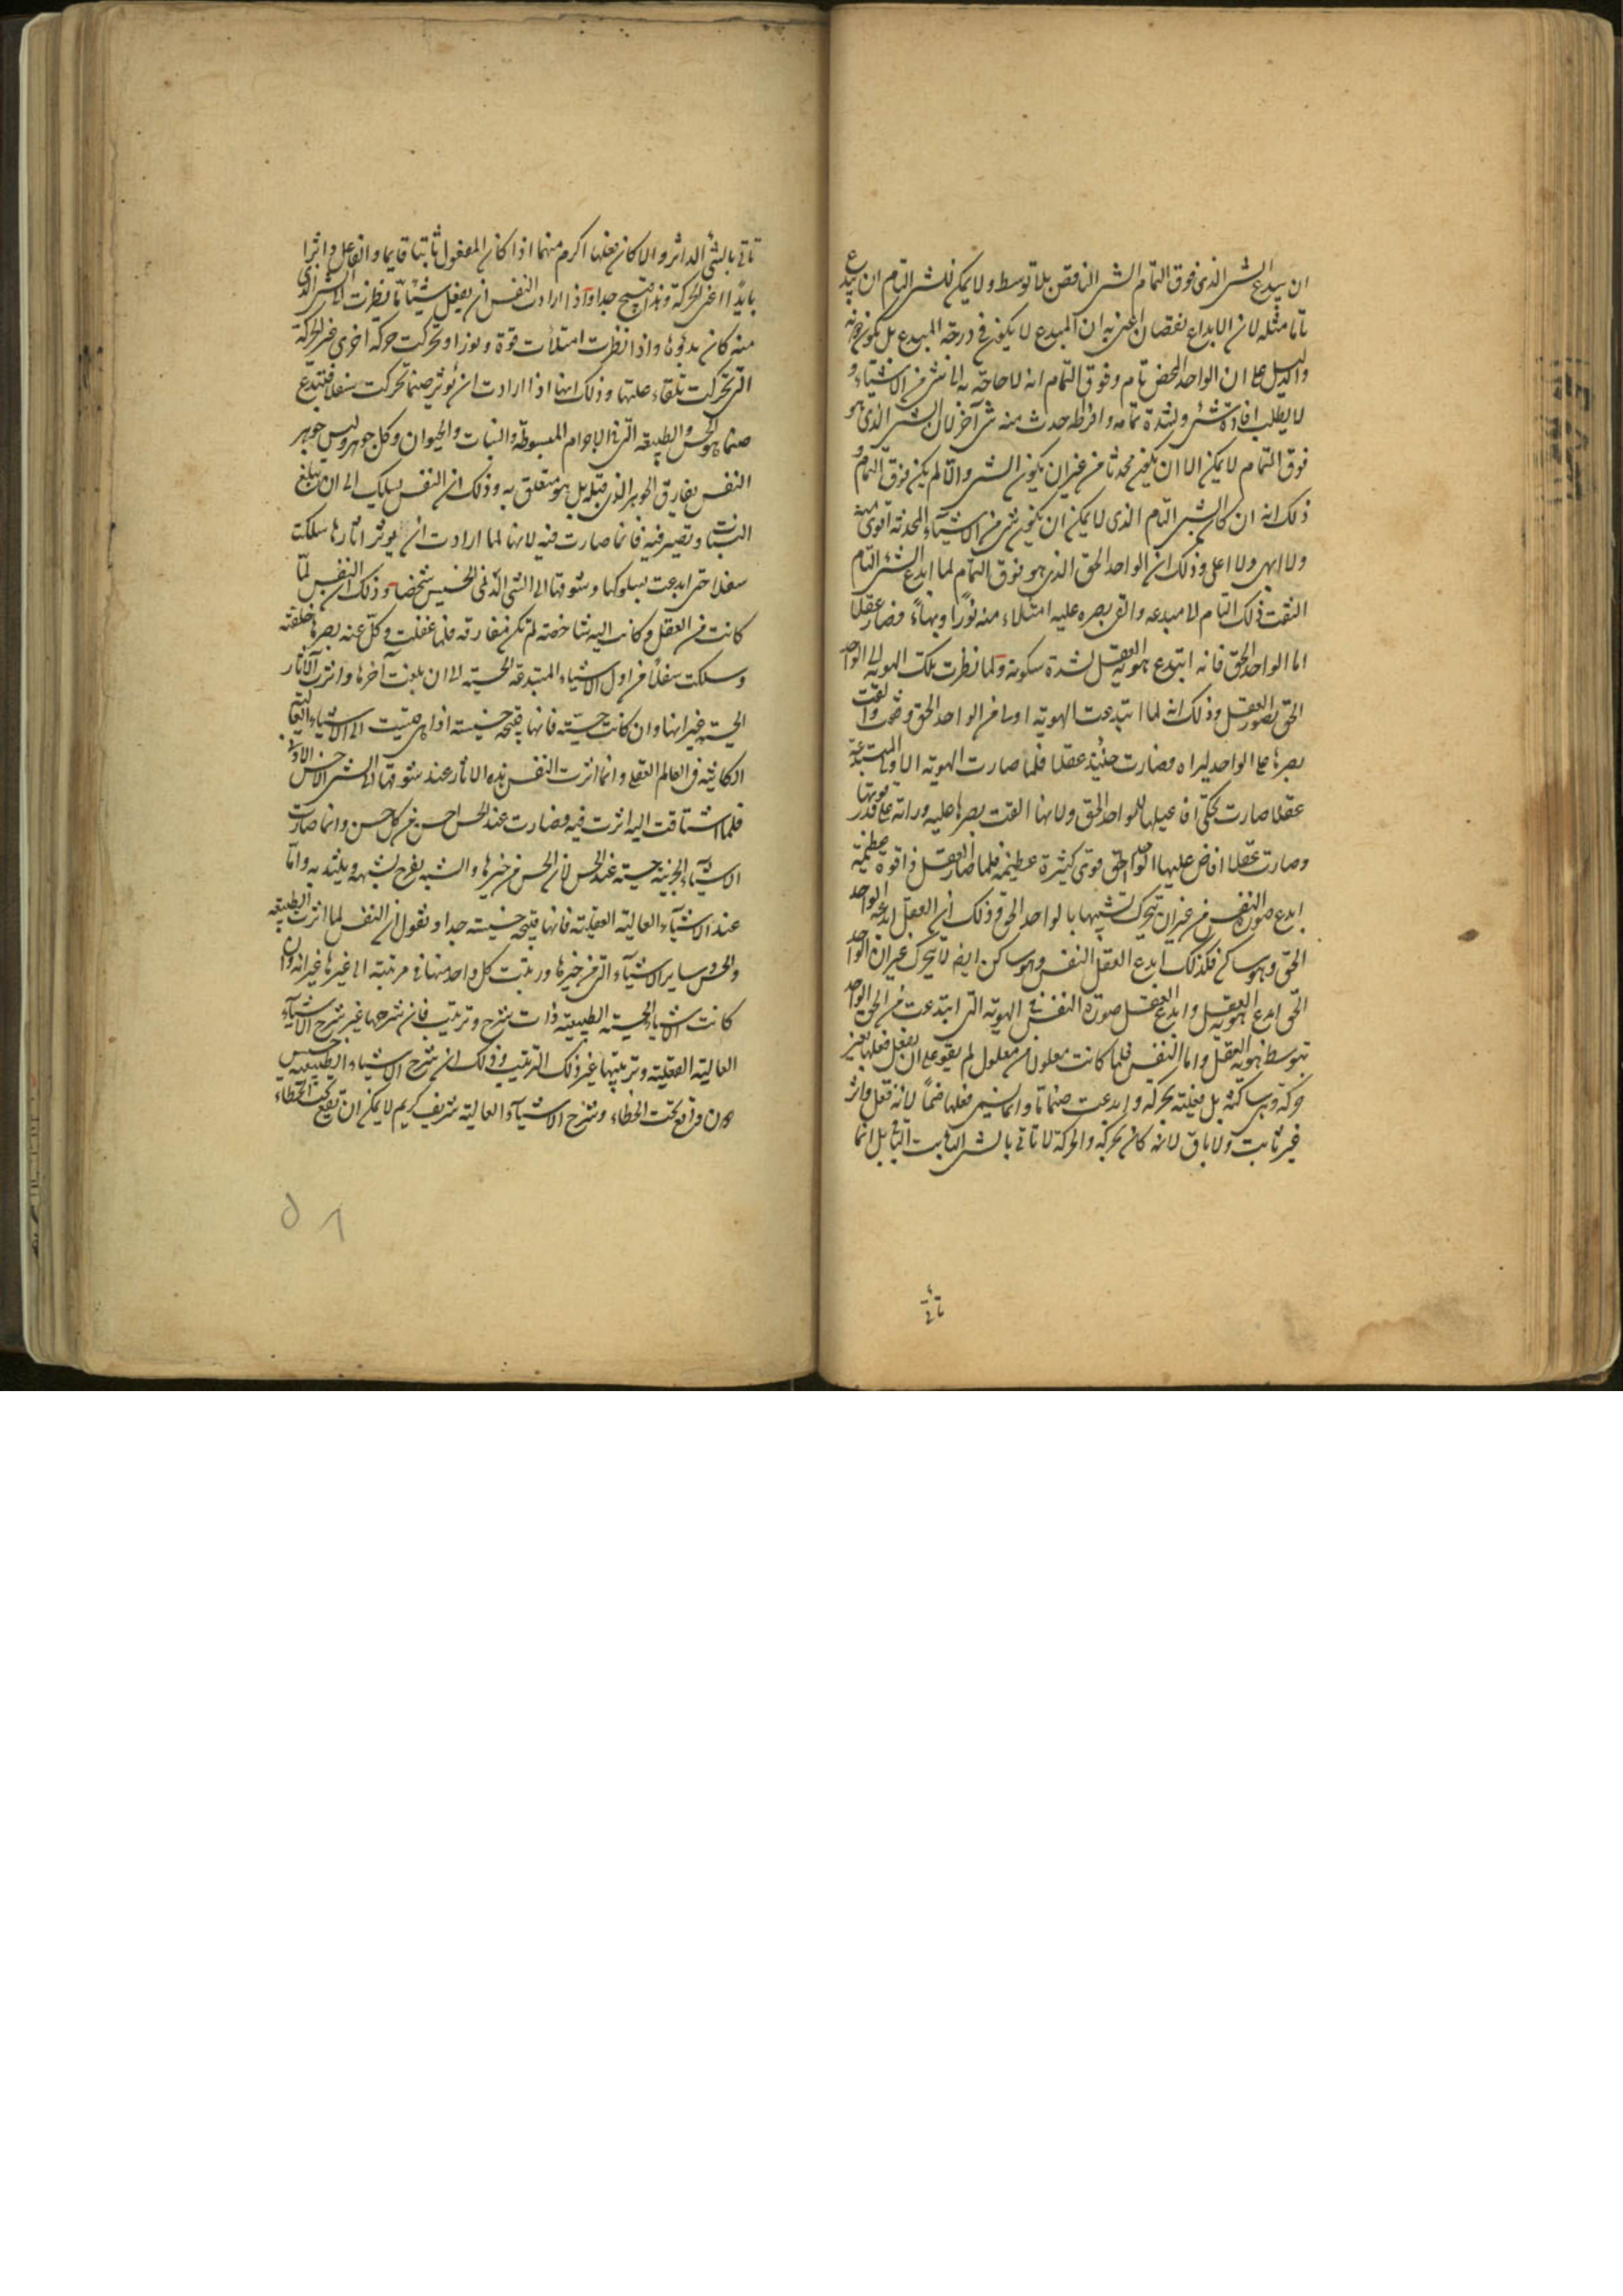 ان يبدع الشئ الذى فوق التمام الشئ الناقص بلا توسط ولا يمكن للشئ التام ان يبدع
تاما مثله لان الابداع نقصان اعنى به ان المبدع لا يكون فى درجة المبدع بل يكون دونه
والدليل على ان الواحد المحض تام وفوق التمام انه لا حاجة به الى شئ من الاشياء و
لا يطلب افادة شئ ولشدة تمامه وافراطه حدث منه شئ آخر لان الشئ الذى هو
فوق التمام لا يمكن الا ان يكون محدثا من غير ان يكون الشئ والا لم يكن فوق التمام و
ذلك انه ان كان الشئ التام الذى لا يمكن ان يكون شئ من الاشياء المحدثة اقوى منه
ولا ابهى ولا اعلى وذلك ان الواحد الحق الذى هو فوق التمام لما ابدع الشئ التام
التفت ذلك التام الى مبدعه والقى بصره عليه امتلاء منه نورا وبهاء فصار عقلا
اما الواحد الحق فانه ابتدع هوية العقل لشدة سكونه فلما نظرت تلك الهوية الى الواحد
الحق تصور العقل وذلك انه لما ابتدعت الهوية الاولى من الواحد الحق وقفت والقت
بصرها على الواحد ليراه فصارت حينئذ عقلا فلما صارت الهوية الاولى المبتدعة
عقلا صارت تحكى افاعيلها للواحد الحق ولانها القت بصرها عليه وراته على قدر قوتها
وصارت عقلا افاض عليها الواحد الحق قوى كثيرة عظيمة فلما صار العقل ذا قوة عظيمة
ابدع صورة النفس من غير ان يتحرك تشبيها بالواحد الحق وذلك ان العقل ابدعه الواحد
الحق وهو ساكن فكذلك ابدع العقل النفس وهو ساكن ايضا لا يتحرك غير ان الواحد
الحق ابدع هوية العقل وابدع العقل صورة النفس فى الهوية التى ابتدعت من الحق الواحد
بتوسط هوية العقل واما النفس فلما كانت معلولا من معلول لم يقو على ان يفعل فعلها بغير
حركة وهى ساكنة بل فعلته بحركة وابدعت صنما ما وانما يسمى فعلها صنما لانه فعل داثر
غير ثابت ولا باق لانه كان بحركة والحركة لا تاتى بالشئ الثابت الباقى بل انما
تاتى
تاتى بالشئ الداثر والا كان فعلها اكرم منهما اذا كان المفعول ثابتا قايما والفاعل داثرا
بايدا اعنى الحركة وهذا قبيح جدا واذا ارادت النفس ان يفعل شيئا ما نظرت الى الشئ الذى
منه كان بدوها واذا نظرت امتلأت قوة ونورا وتحركت حركة اخرى غير الحركة
التى تحركت تلقاء علتها وذلك انها اذا ارادت ان تؤثر صنما تحركت سفلا فتبتدع
صنما هو الحس والطبيعة التى فى الاجرام المبسوطة والنبات والحيوان وكل جوهر وليس جوهر
النفس يفارق الجوهر الذى قبله بل هو متعلق به وذلك ان النفس يسلك الى ان تبلغ
النبات وتصير فيه فانما صارت فيه لانها لما ارادت ان يوثر اثارها سلكت
سفلا حتى ابدعت بسلوكها وشوقها الى الشئ الدنى الخسيس شخصا وذلك ان النفس لما
كانت فى العقل وكانت اليه شاخصة لم تكن مفارقة فلما غفلت وكل عنه بصرها خلفته
وسلكت سفلا من اول الاشياء المبتدعة الحسية الى ان بلغت آخرها واثرت الآثار
الحسنة غير انها وان كانت حسنة فانها قبيحة خسيسة اذا هى قيست الى الاشياء العالية
الكائنة فى العالم العقلى وانما اثرت النفس هذه الاثار عند شوقها الى الشئ الاخس الادنى
فلما اشتاقت اليه اثرت فيه فصارت عند الحس احسن من كل حسن وانما صارت
الاشياء الجزئية حسنة عند الحس لان الحس من حيزها والشبه يفرح بشبهه ويلتذ به واما
عند الاشياء العالية العقلية فانها قبيحة خسيسة جدا ونقول ان النفس لما اثرت الطبيعة
والحس وساير الاشياء التى من حيزها ورتبت كل واحد منها فى مرتبته الى غيرها غير انه وان
كانت الاشياء الحسية الطبيعية ذات شرح وترتيب فان شرحها غير شرح الاشياء
العالية العقلية وترتيبها غير ذلك الترتيب وذلك ان شرح الاشياء الطبيعية خسيس
دون واقع تحت الخطاء وشرح الاشياء العالية شريف كريم لا يمكن ان يقع تحت الخطاء